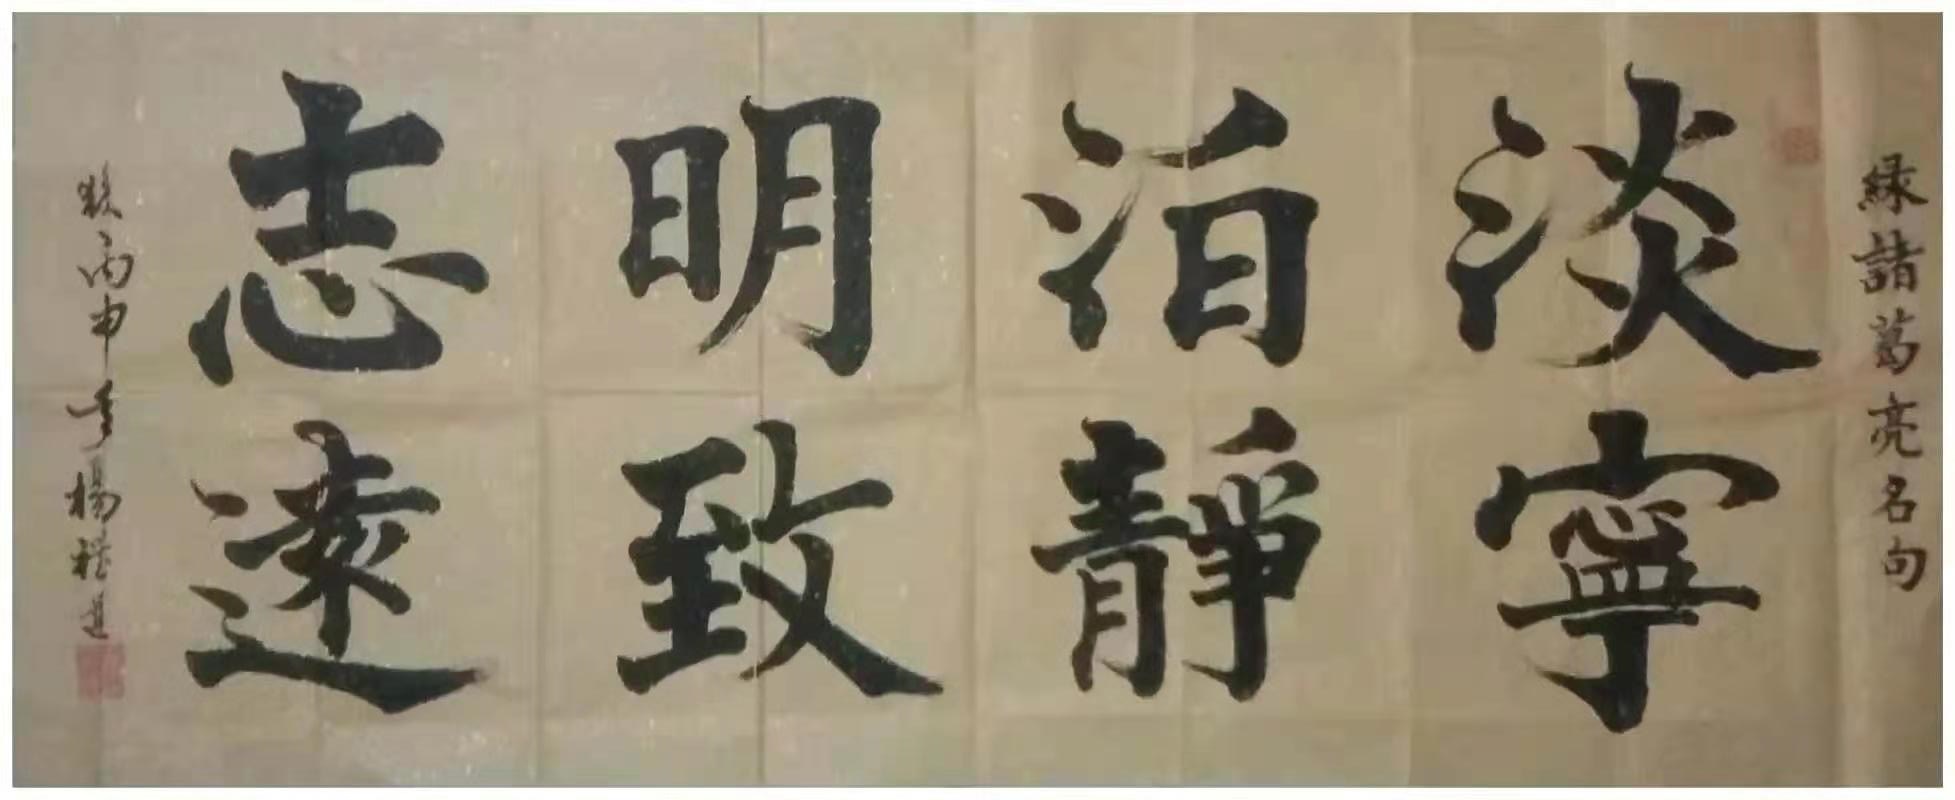 緑諸葛亮名句
淡泊明志
寧靜致遠
丙申年楊